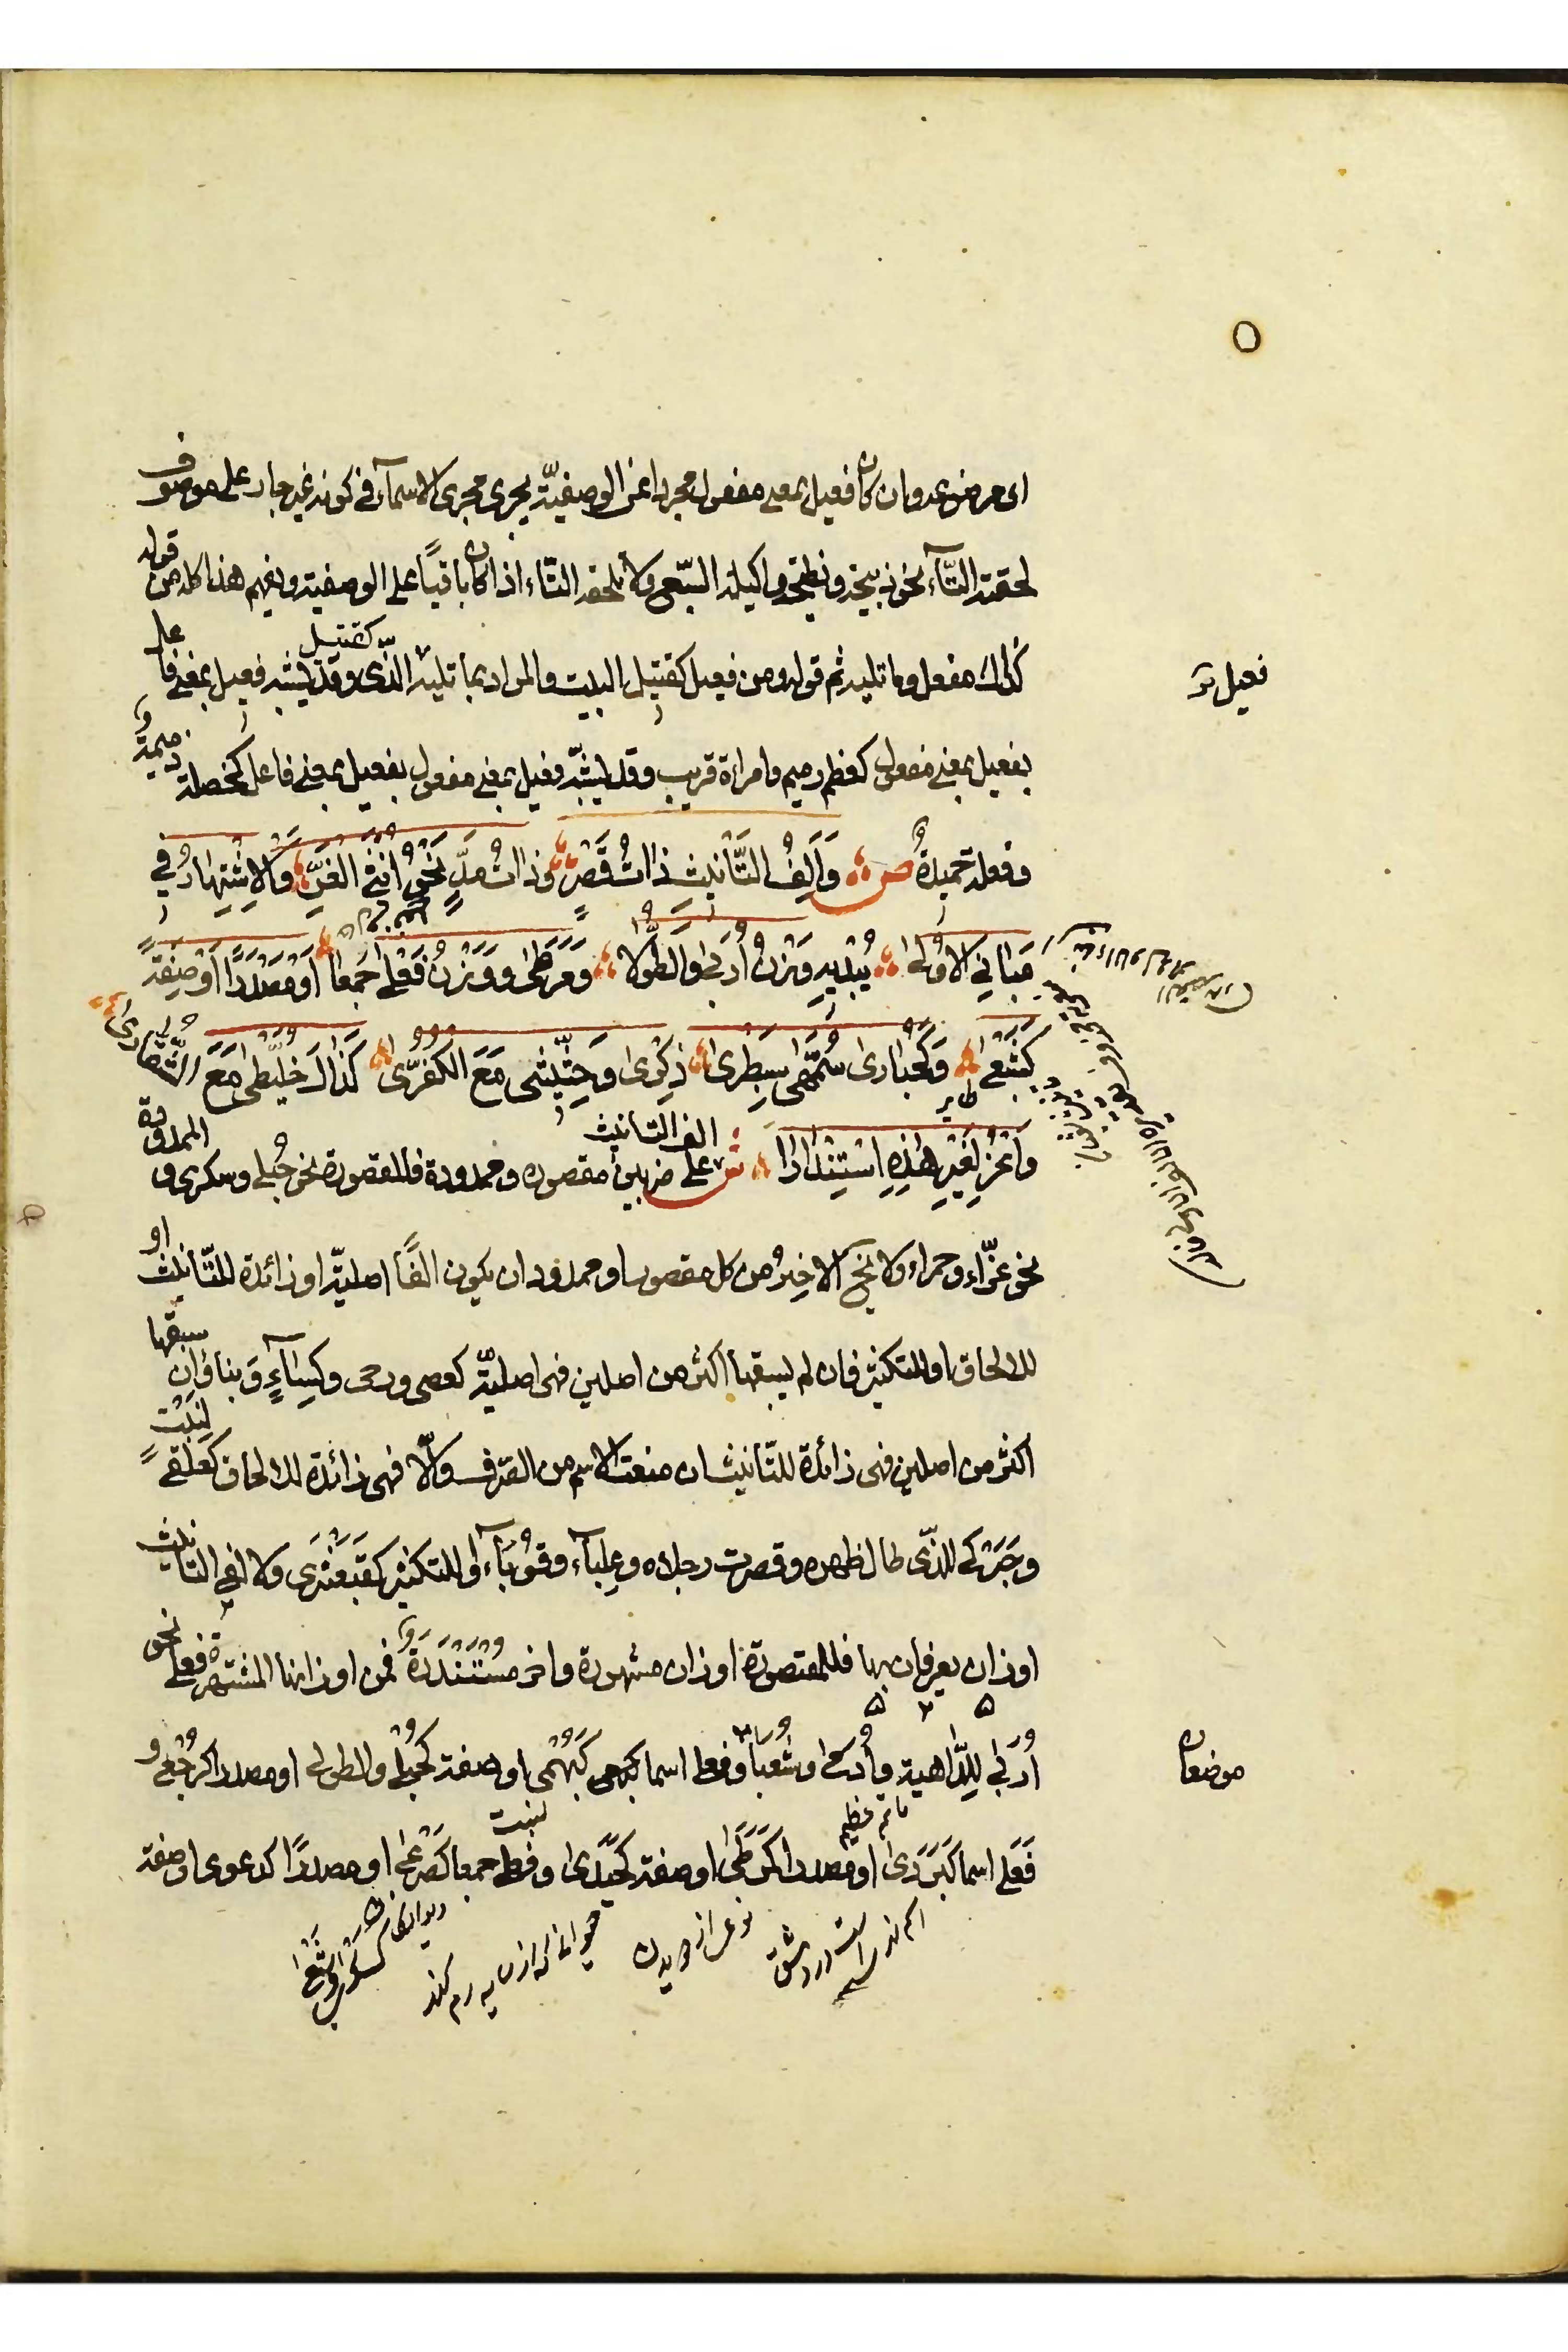 اى مرضوعة وان كان فعيل بمعنى مفعول مجردا عن الوصفيّة يجرى مجرى الاسمآء فى كونه غير جار على موصوف
لحقته التّآء نحو ذبيحة ونطيحة واكيلة السّبع ولا تلحقه التّاء اذا كان باقيًا على الوصفية ويفهم هذا كله من قوله
كذاك مفعل وما تليه ثم قوله ومن فعيل كقتيل البيت والمراد بما تليه الّذى وقد يشبه فعيل بمعنى فاعل
فعيل
كقتيل
بفعيل بمعنى مفعول كعظم رميم وامراءة قريب وقد يشبّه فعيل بمعنى مفعول بفعيل بمعنى فاعل كخصلة ذميمة و
وفعلة حميدةٌ ص وَأَلِفُ التَّأْنِيثِ ذَاتُ قَصْرٍ وَذَاتُ مَدٍّ نَحْوُ أُنْثَى الغُرِّ وَالاِشْتِهَارُ فِي
مَبَانِي الاُولَى يُبْدِيهِ وَزْنُ أُرَبَى وَالطُّوْلَى وَمَرَطَى وَوَزْنُ فَعْلَى جَمْعًا أَوْ مَصْدَرًا أَوْ صِفَةً
كَشَبْعَى وَكَحُبَارَى سُمَّهَى سِبَطْرَى ذِكْرَى وَحِثِّيثَى مَعَ الكُفُرَّى كَذَاكَ خُلَّيْطَى مَعَ الشُّقَّارَى
وَاعْزُ لِغَيْرِ هٰذِهِ اسْتِنْدَارًا ش الف التانيث على ضربين مقصوره وممدودة فالمقصورة نحو حُبلى وسكرى و الممدودة
نحو غرّاء وحمراء ولا يخ الاخيرُ من كل مقصور او ممدود ان يكون الفًا اصليّة او زائدة للتّانيث او
للالحاق او للتكثير فان لم يسبقها اكثر من اصلين فهى اصليّة كعصى ورحى وكِسَآءٍ وَبناء وان سبقها
اكثر من اصلين فهى زائدة للتّانيث ان منعت الاسم من الصّرف والّا فهى زائدة للالحاق كعَلْقى لنبت
وحَبَركى للذّى طال ظهره وقصرت رجلاه وعِلبآء وقُوبَآء او للتكثير كقَبَعْثَرى ولالفى التانيث
اوزان يعرفان بها فللمقصورة اوزان مشهورة واخر مُسْتَنْدَرَة فمن اوزانها المشتهرة فعلى نحو
أُرَبى للدّاهية وأُدَمى وشُعَبى وفعلى اسما كبُهْمى او صفة كحُبلى والطولى او مصدرا كرُجْعى و
موضعان
فَعَلى اسما كَبَرَدى او مصدرا كَمَرَطَى او صفة كحَيَدى وفعلى جمعا كصَرْعى او مصدرًا كدعوى او صفة
اسم نهر است در دمشق
نوعى از دويدن